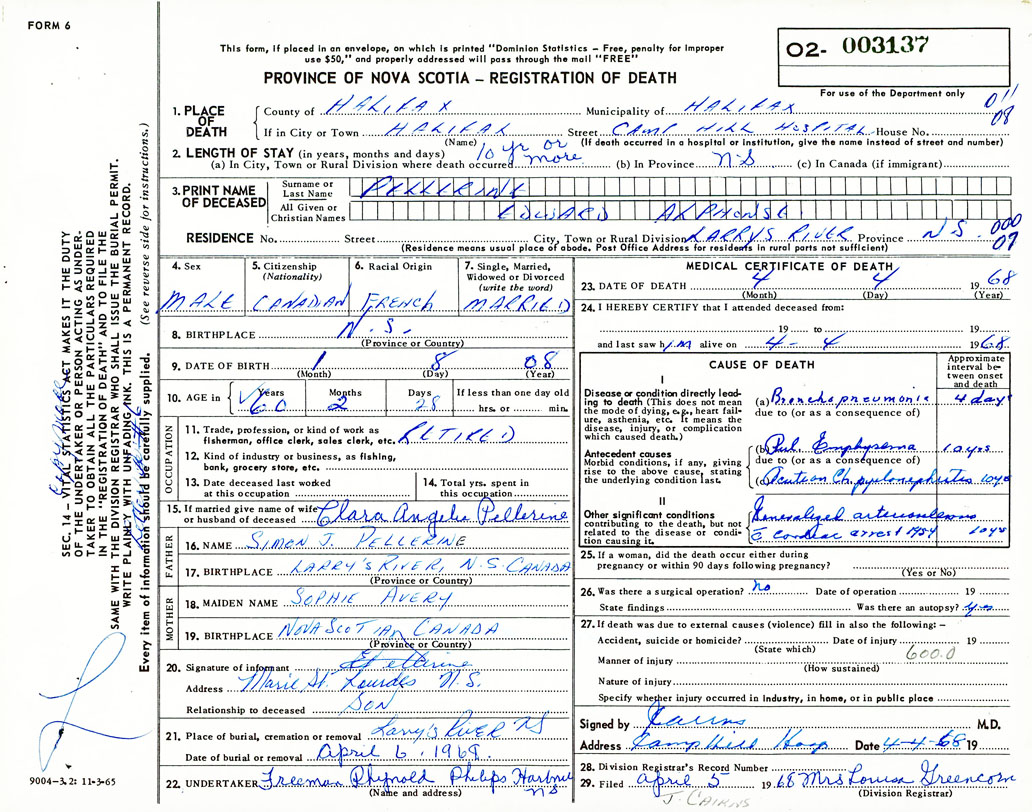 FORM 6
This form, if placed in an envelope, on which is printed "Dominion Statistics – Free, penalty for improper
use $50," and properly addressed will pass through the mail "FREE"
02- 003137
For use of the Department only
PROVINCE OF NOVA SCOTIA – REGISTRATION OF DEATH
1. PLACE OF DEATH
County of HALIFAX Municipality of HALIFAX
011
08
If in City or Town HALIFAX Street CAMP HILL HOSPITAL House No.
(Name) (If death occurred in a hospital or institution, give the name instead of street and number)
2. LENGTH OF STAY (in years, months and days) 10 yr or more
(a) In City, Town or Rural Division where death occurred (b) In Province N S (c) In Canada (if immigrant)
3. PRINT NAME OF DECEASED
Surname or Last Name PELLERINE
All Given or Christian Names EDWARD ALPHONSE
000
07
RESIDENCE No. Street City, Town or Rural Division LARRYS RIVER Province N S.
(Residence means usual place of abode. Post Office Address for residents in rural parts not sufficient)
4. Sex MALE
5. Citizenship (Nationality) CANADIAN
6. Racial Origin FRENCH
7. Single, Married, Widowed or Divorced (write the word) MARRIED
8. BIRTHPLACE N.S.
(Province or Country)
9. DATE OF BIRTH 1 8 08
(Month) (Day) (Year)
10. AGE in Years 60 Months 2 Days 28 If less than one day old
hrs. or min.
OCCUPATION
11. Trade, profession, or kind of work as
fisherman, office clerk, sales clerk, etc. RETIRED
12. Kind of industry or business, as fishing,
bank, grocery store, etc.
13. Date deceased last worked
at this occupation
14. Total yrs. spent in
this occupation
15. If married give name of wife
or husband of deceased Clara Angelis Pellerine
FATHER
16. NAME SIMON J. PELLERINE
17. BIRTHPLACE LARRY'S RIVER, N.S. CANADA
(Province or Country)
MOTHER
18. MAIDEN NAME SOPHIE AVERY
19. BIRTHPLACE NOVA SCOTIAn CANADA
(Province or Country)
20. Signature of informant
Address Marie St. Lourdes N.S.
Relationship to deceased SON
21. Place of burial, cremation or removal Larry's RIVER NS
Date of burial or removal April 6. 1968
22. UNDERTAKER Freeman Rhynold Philips Harbour NS
(Name and address)
MEDICAL CERTIFICATE OF DEATH
23. DATE OF DEATH 4 4 1968
(Month) (Day) (Year)
24. I HEREBY CERTIFY that I attended deceased from:
19 to 19
and last saw him alive on 4 - 4 1968.
CAUSE OF DEATH
Approximate interval between onset and death
I
Disease or condition directly leading to death (This does not mean
the mode of dying, e.g., heart failure, asthenia, etc. It means the
disease, injury, or complication
which caused death.)
(a) Bronchopneumonia 4 days
due to (or as a consequence of)
Antecedent causes
Morbid conditions, if any, giving
rise to the above cause, stating
the underlying condition last.
(b) Pul. Emphysema 10 yrs
due to (or as a consequence of)
(c) Acute on Ch. pyelonephritis 10 yrs
II
Other significant conditions
contributing to the death, but not
related to the disease or condition causing it.
Generalized arteriosclerosis
c cardiac arrest 1954 10 yrs
25. If a woman, did the death occur either during
pregnancy or within 90 days following pregnancy?
(Yes or No)
26. Was there a surgical operation? no Date of operation 19
State findings Was there an autopsy? yes
27. If death was due to external causes (violence) fill in also the following: –
Accident, suicide or homicide? Date of injury 19
(State which)
600.0
Manner of injury
(How sustained)
Nature of injury
Specify whether injury occurred in industry, in home, or in public place
Signed by Cairns M.D.
Address Camp Hill Hosp Date 4-4-68 19
28. Division Registrar's Record Number
29. Filed April 5 1968 Mrs Louisa Greencorn
(Division Registrar)
J. CAIRNS
SEC. 14 – VITAL STATISTICS ACT MAKES IT THE DUTY
OF THE UNDERTAKER OR PERSON ACTING AS UNDER-
TAKER TO OBTAIN ALL THE PARTICULARS REQUIRED
IN THE "REGISTRATION OF DEATH" AND TO FILE THE
SAME WITH THE DIVISION REGISTRAR WHO SHALL ISSUE THE BURIAL PERMIT.
WRITE PLAINLY WITH UNFADING INK. THIS IS A PERMANENT RECORD.
Every item of information should be carefully supplied. (See reverse side for instructions.)
9004-3.2: 11-3-65